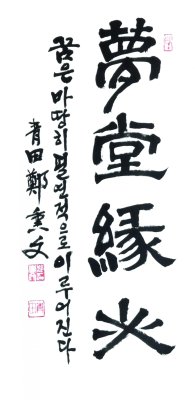 夢堂緣必
꿈은 마땅히 필연적으로 이루어진다
青田 鄭